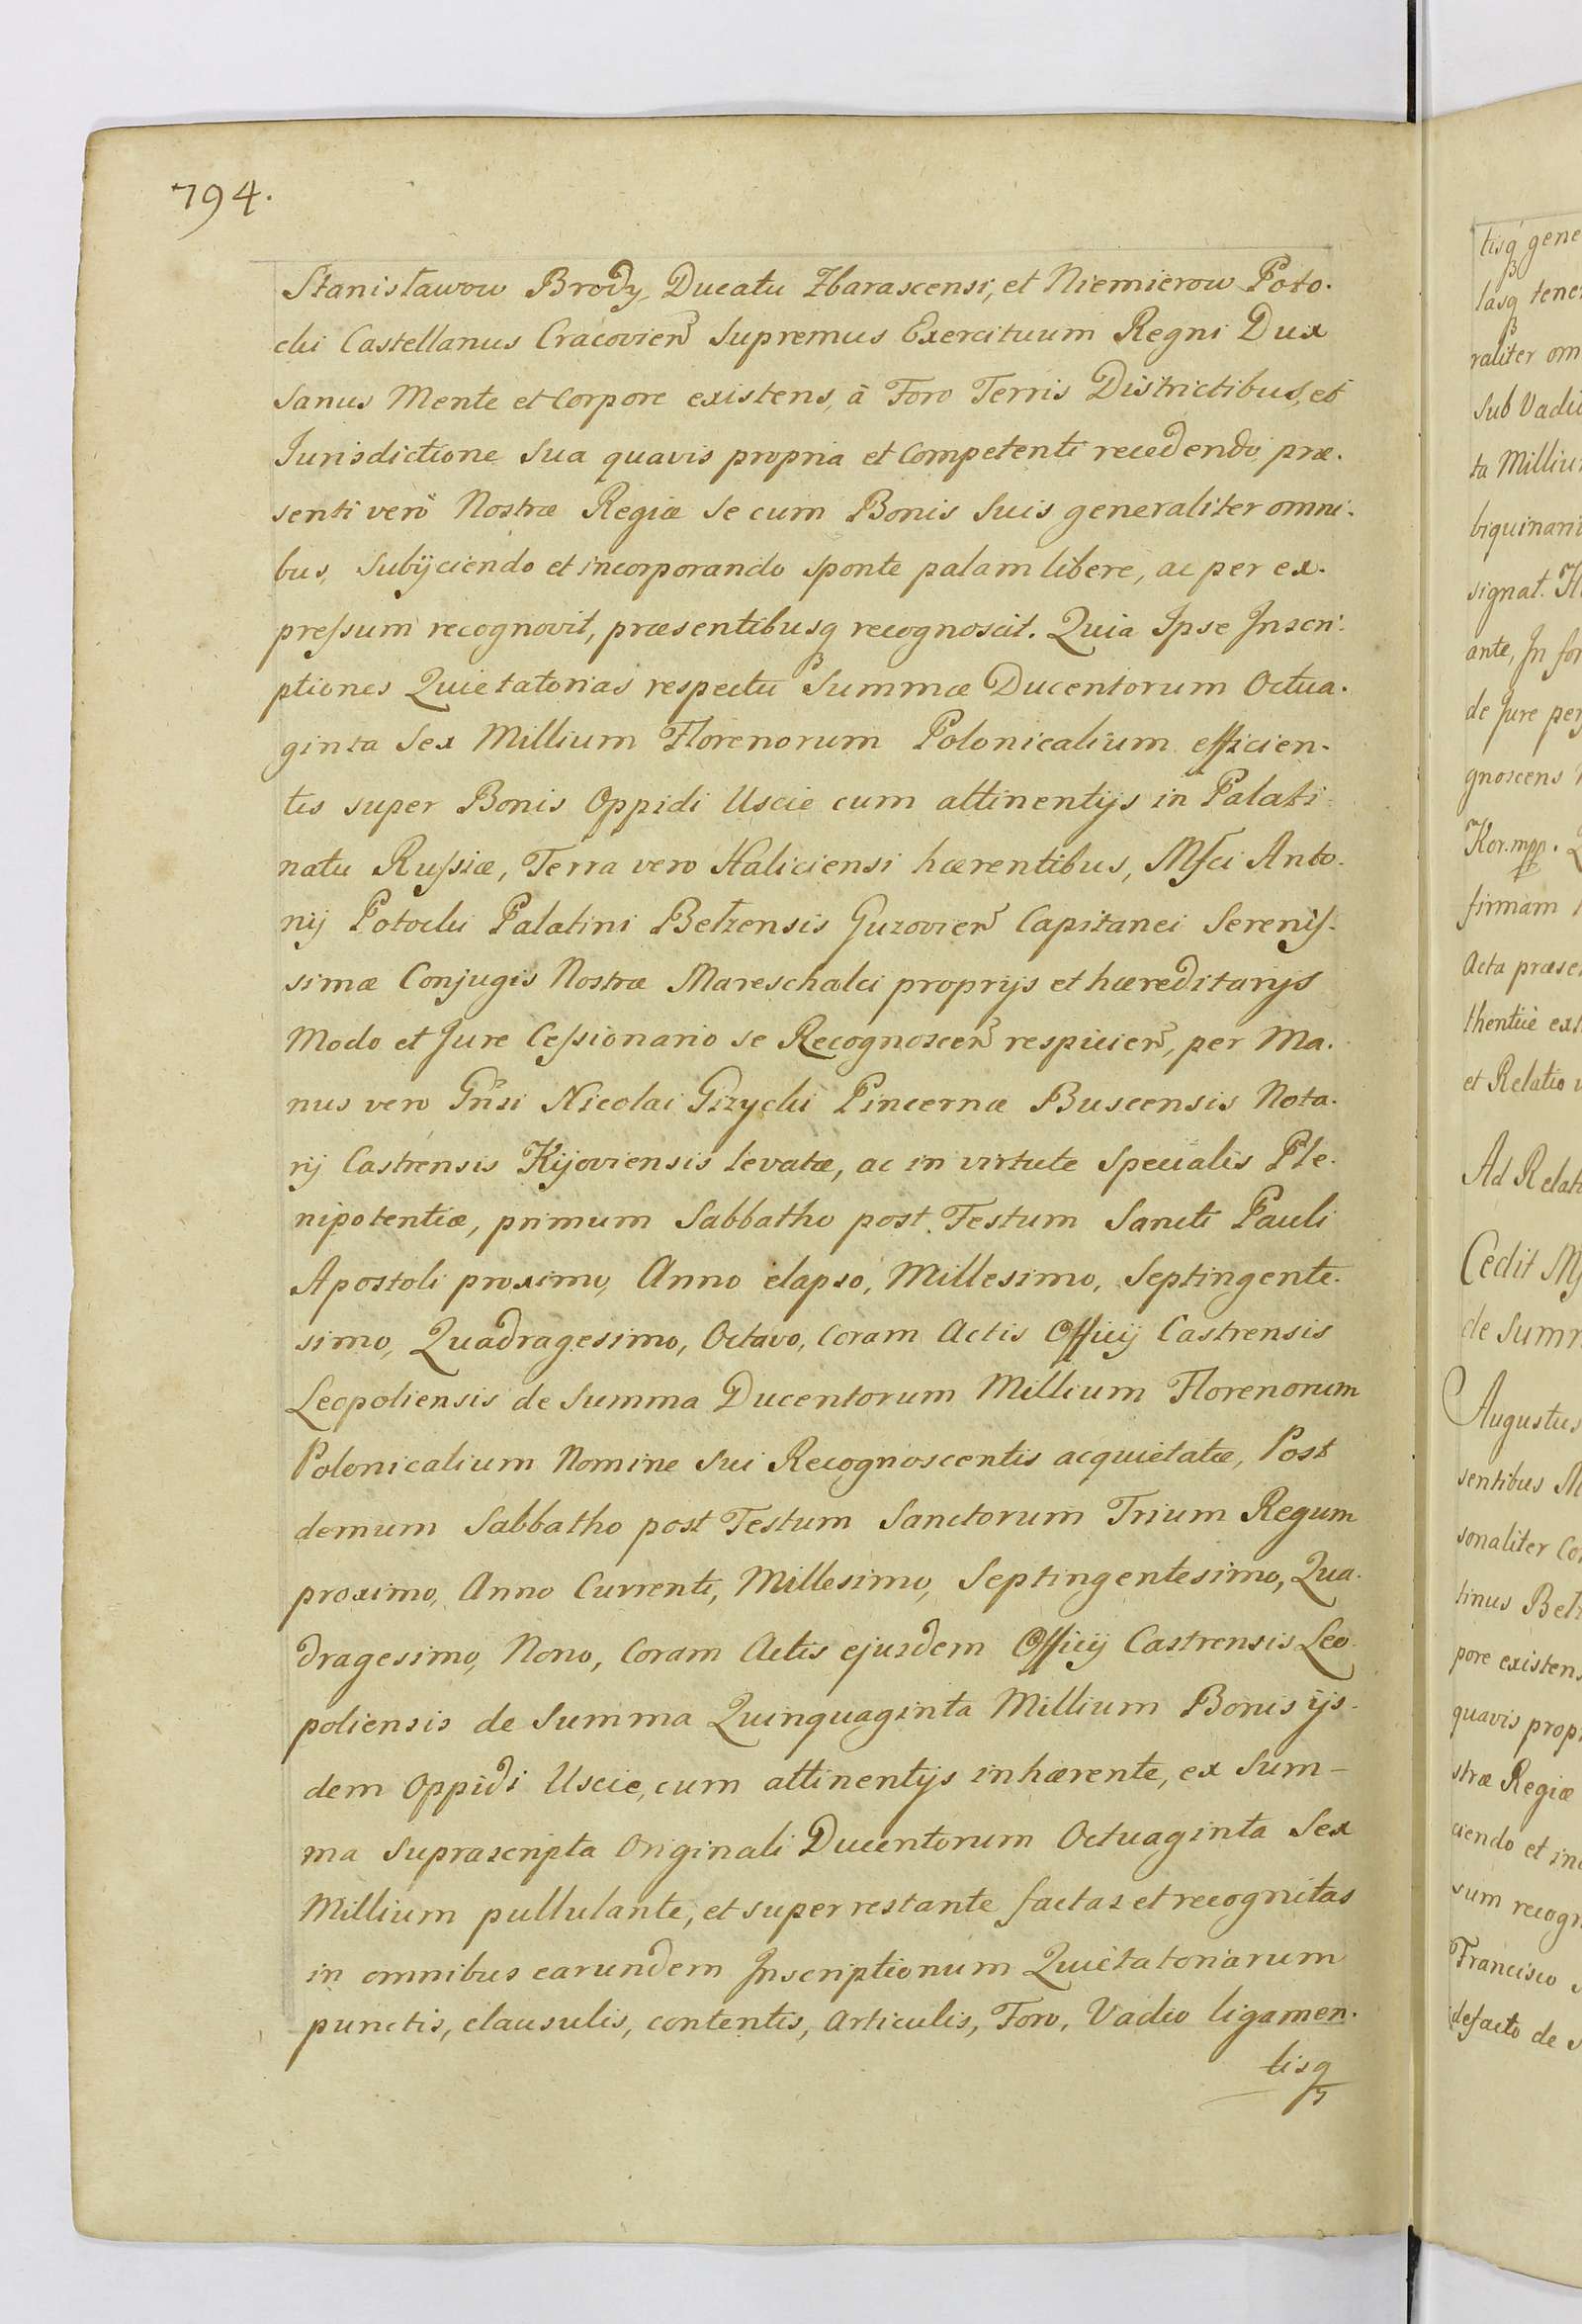 794.
Stanisławow Brody, Ducatu Zbarascensi, et Niemierow Poto.
cki Castellanus Cracovien̄ Supremus Exercituum Regni Dux
Sanus Mente et Corpore existens, à Foro Terris Districtibus, et
Jurisdictione Sua quavis propria et Competenti recedendo, præ.
senti verò Nostræ Regiæ se cum Bonis Suis generaliter omni.
bus, Subijciendo et incorporando sponte palam libere, ac per ex.
preſsum recognovit, præsentibusq recognoscit. Quia Ipse Inscri.
ptiones Quietatorias respectu Summæ Ducentorum Octua.
ginta Sex Millium Florenorum Polonicalium efficien.
tis super Bonis Oppidi Uscie cum attinentijs in Palati
natu Ruſsiæ, Terra vero Haliciensi hærentibus, Mſci Anto.
nij Potocki Palatini Bełzensis Guzovien̄ Capitanei Sereniſ.
simæ Conjugis Nostræ Mareschalci proprijs et hæreditarijs
Modo et Jure Ceſsionario se Recognoscen̄ respicien̄, per Ma.
nus vero Gn̄si Nicolai Giżycki Pincernæ Buscensis Nota.
rij Castrensis Kijoviensis levatæ, ac in virtute Specialis Ple.
nipotentiæ, primum Sabbatho post Festum Sancti Pauli
Apostoli proximo, Anno elapso, Millesimo, Septingente.
simo, Quadragesimo, Octavo, Coram Actis Officij Castrensis
Leopoliensis de Summa Ducentorum Millium Florenorum
Polonicalium Nomine Sui Recognoscentis acquietatæ, Post
demum Sabbatho post Festum Sanctorum Trium Regum
proximo, Anno Currenti, Millesimo, Septingentesimo, Qua.
dragesimo, Nono, Coram Actis ejusdem Officij Castrensis Leo
poliensis de Summa Quinquaginta Millium Bonis ijs.
dem Oppidi Uscie, cum attinentijs inhærente, ex Sum-
ma Suprascripta Originali Ducentorum Octuaginta Sex
Millium pullulante, et super restante factas et recognitas
in omnibus earundem Inscriptionum Quietatoriarum
punctis, clausulis, contentis, Articulis, Foro, Vadio ligamen.
tisq
tisq gene
lasq tene
raliter om
Sub Vadi
ta Milliu
biquinari
signat.
ante, In for
de Jure per
gnoscens
Kor. mpp.
firmam
Acta præse
thentice ext
et Relatio
Ad Relati
Cedit
de Sum
Augustus
sentibus
sonaliter Co
tinus Beł
pore existens
quavis propr
stræ Regiæ
ciendo et in
sum recogn
Francisco
defacto de